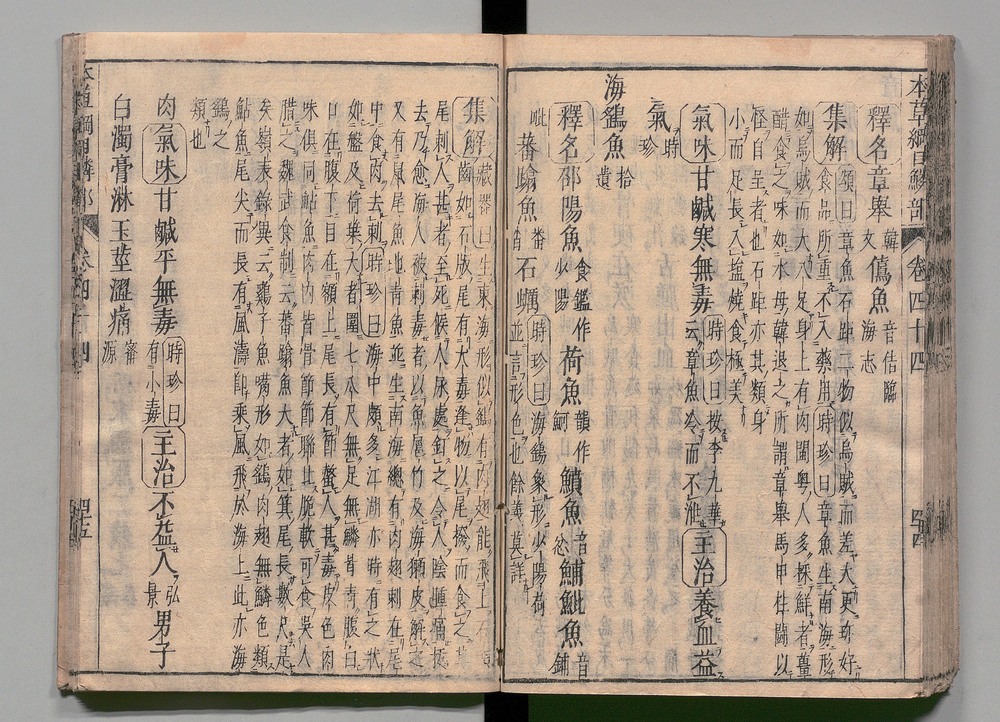 本草綱目鱗部 卷四十四
釋名章舉韓文𠎝魚音佶臨海志
集解頌曰章魚石距二物似烏賊而差大更珍好
食品所重不入藥用時珍曰章魚生南海形
如烏賊而大八足身上有肉閩粤人多採鮮者薑
醋食之味如水母韓退之所謂章舉馬甲柱鬪以
怪自呈者也石距亦其類身
小而足長入鹽燒食極美
氣味甘鹹寒無毒時珍曰按李九華云章魚冷而不泄主治養血益
氣時珍
海鷂魚拾遺
釋名邵陽魚食鑑作少陽荷魚韻作鱝魚音忿鯆魮魚音鋪
毗蕃蹹魚番沓石蠣時珍曰海鷂象形少陽荷並言形色也餘義莫詳
集解藏器曰生東海形似鷂有肉翅能飛上石
齒如石版尾有大毒逢物以尾撥而食之其
尾刺人甚者至死候人尿處釘之令人陰腫痛拔
去乃愈海人被刺毒者以魚扈竹及海獺皮解之
又有鼠尾魚地青魚並生南海總有肉翅刺在尾
中食肉去刺時珍曰海中頗多江湖亦時有之狀
如盤及荷葉大者圍七八尺無足無鱗背青腹白
口在腹下目在額上尾長有節螫人甚毒皮色肉
味俱同鮎魚肉內皆骨節節聯比脆軟可食吳人
腊之魏武食制云蕃蹹魚大者如箕尾長數尺是
矣嶺表錄異云鷄子魚嘴形如鷂肉翅無鱗色類
鮎魚尾尖而長有風濤卽乘風飛於海上此亦海
鷂之
類也
肉氣味甘鹹平無毒時珍曰有小毒主治不益人弘景男子
白濁膏淋玉莖澀痛甯源
本草綱目鱗部 卷四十四